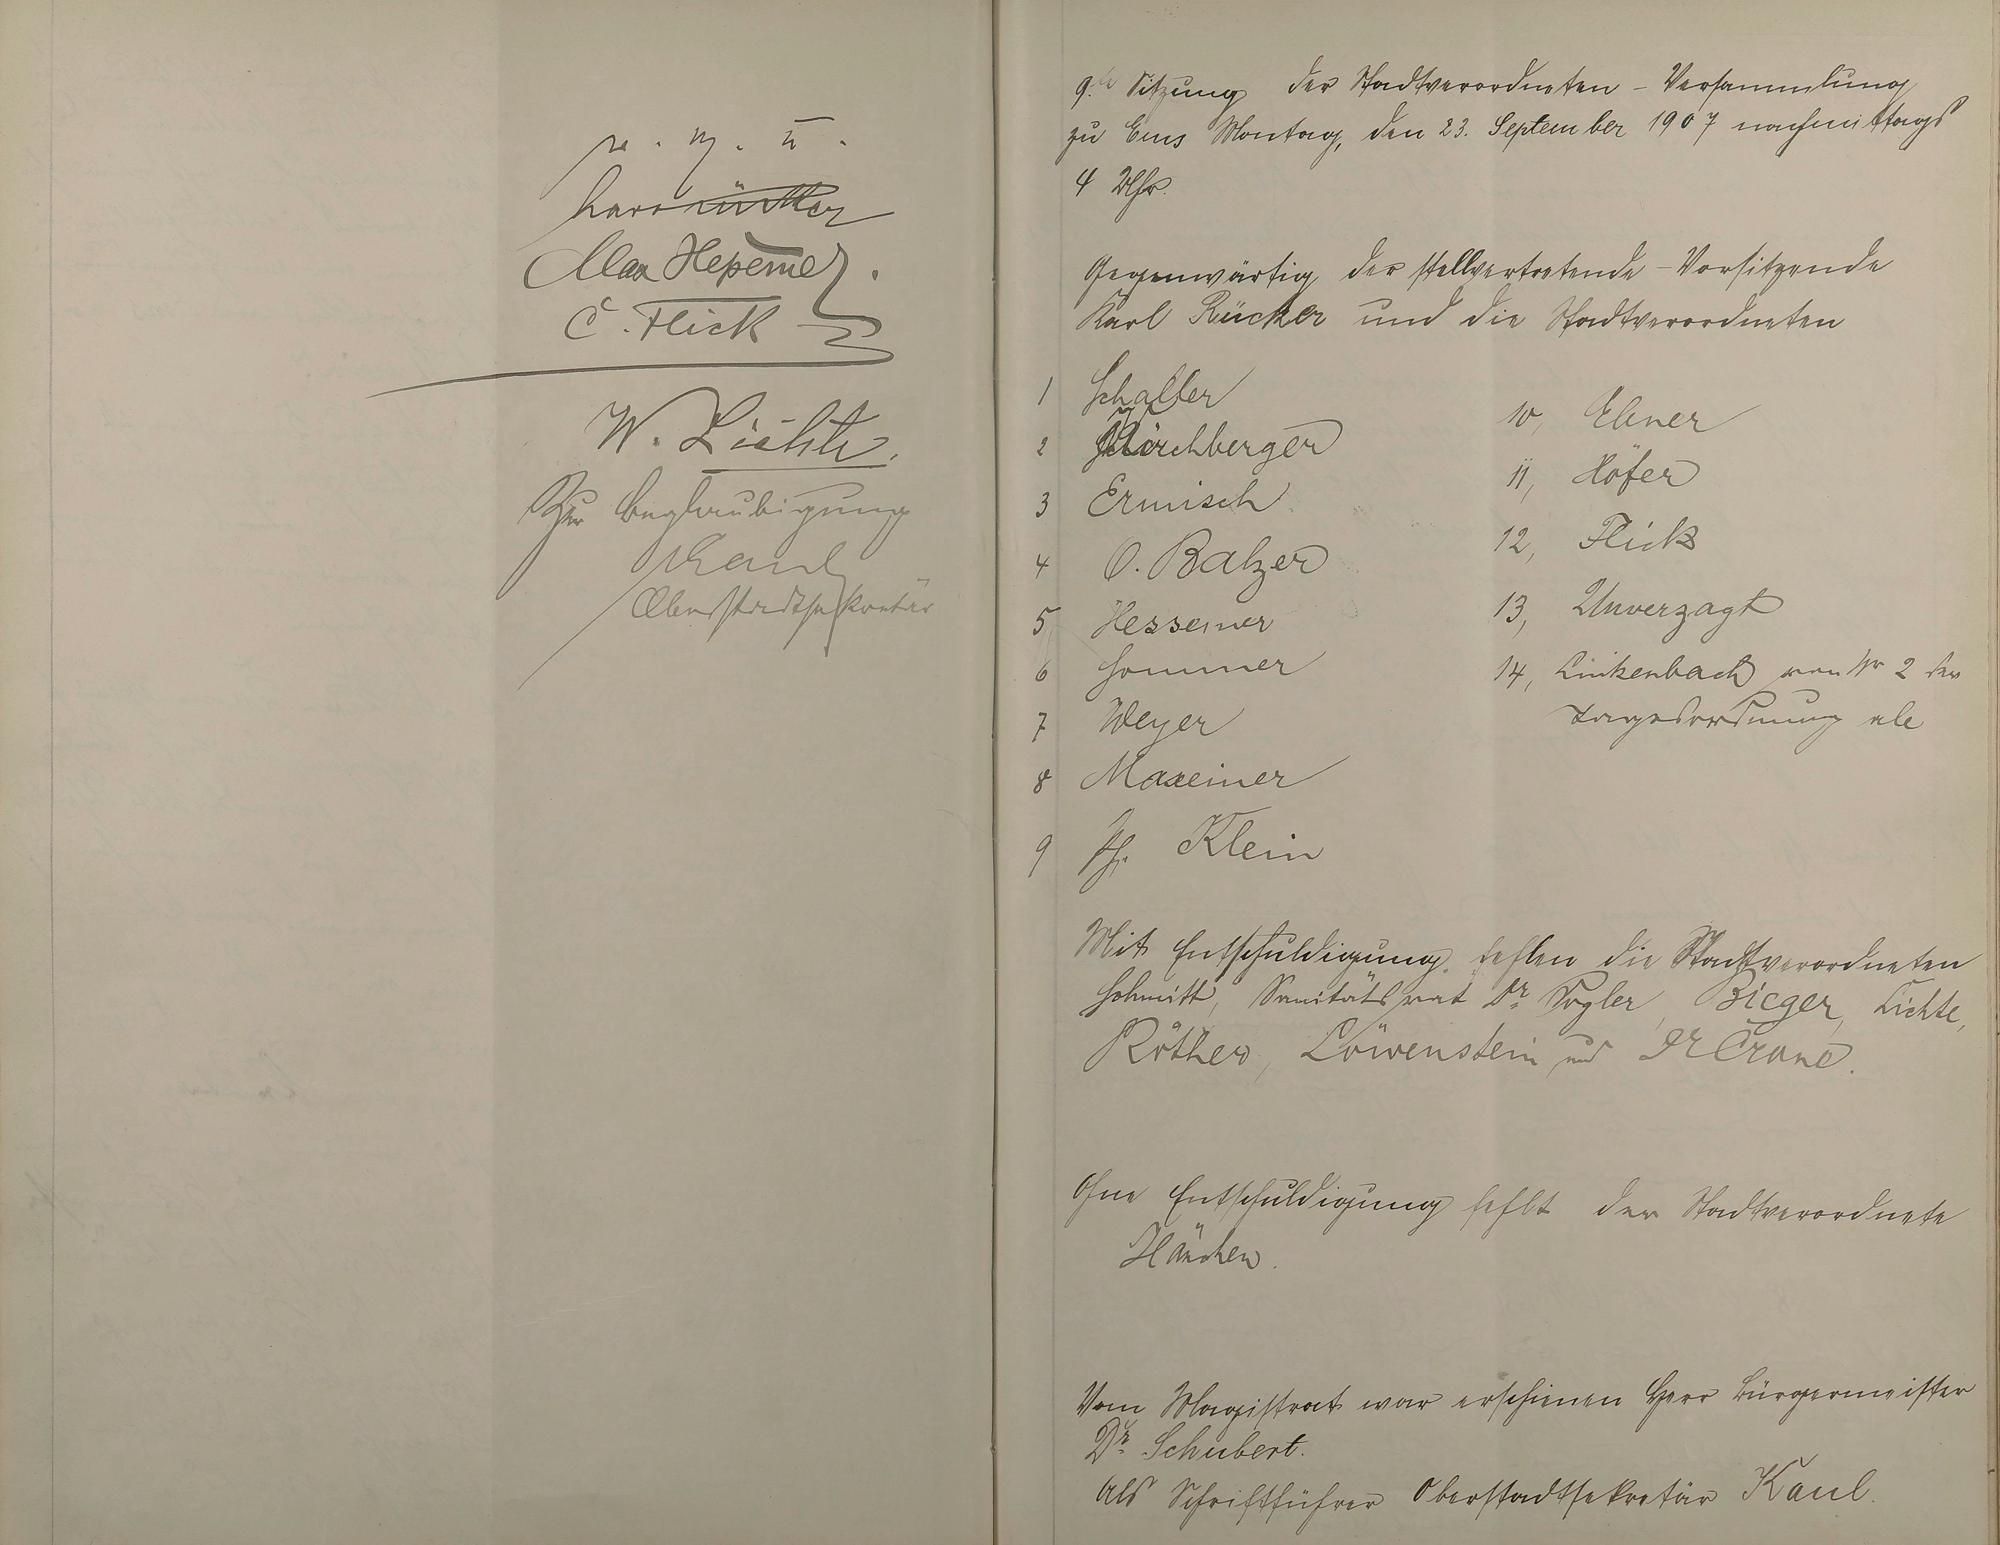 v. g. u.
Max Hessemer.
C. Flick
W. Lichte.
Zur Beglaubigung
Kaul
Oberstadtsekretär
9te Sitzung der Stadtverordneten-Versammlung
zu Ems Montag, den 23. September 1907 nachmittags
4 Uhr.
Gegenwärtig der stellvertretende-Vorsitzende
Karl Rücker und die Stadtverordneten
1 Schaller
2 Kirchberger
3 Ermisch
4 O. Balzer
5 Hessemer
6 Sommer
7 Weyer
8 Maxeiner
9 Ph. Klein
10, Ebner
11, Höfer
12, Flick
13, Unverzagt
14, Linkenbach von Nr 2 der
Tagesordnung ab
Mit Entschuldigung fehlen die Stadtverordneten
Schmitt, Sanitätsrat Dr Vogler, Bieger, Lichte,
Röther, Löwenstein und Dr Crone.
Ohne Entschuldigung fehlt der Stadtverordnete
Hänchen.
Vom Magistrat war erschienen Herr Bürgermeister
Dr. Schubert.
Als Schriftführer Oberstadtsekretär Kaul.